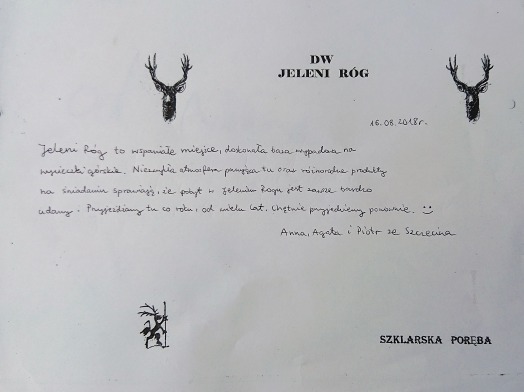 DW
JELENI RÓG
16.08.2018r.
Jeleni Róg to wspaniałe miejsce, doskonała baza wypadowa na
wycieczki górskie. Niezwykła atmosfera panująca tu oraz różnorodne produkty
na śniadaniu sprawiają, że pobyt w Jelenim Rogu jest zawsze bardzo
udany. Przyjeżdżamy tu co roku, od wielu lat. Chętnie przyjedziemy ponownie. :)
Anna, Agata i Piotr ze Szczecina
SZKLARSKA PORĘBA